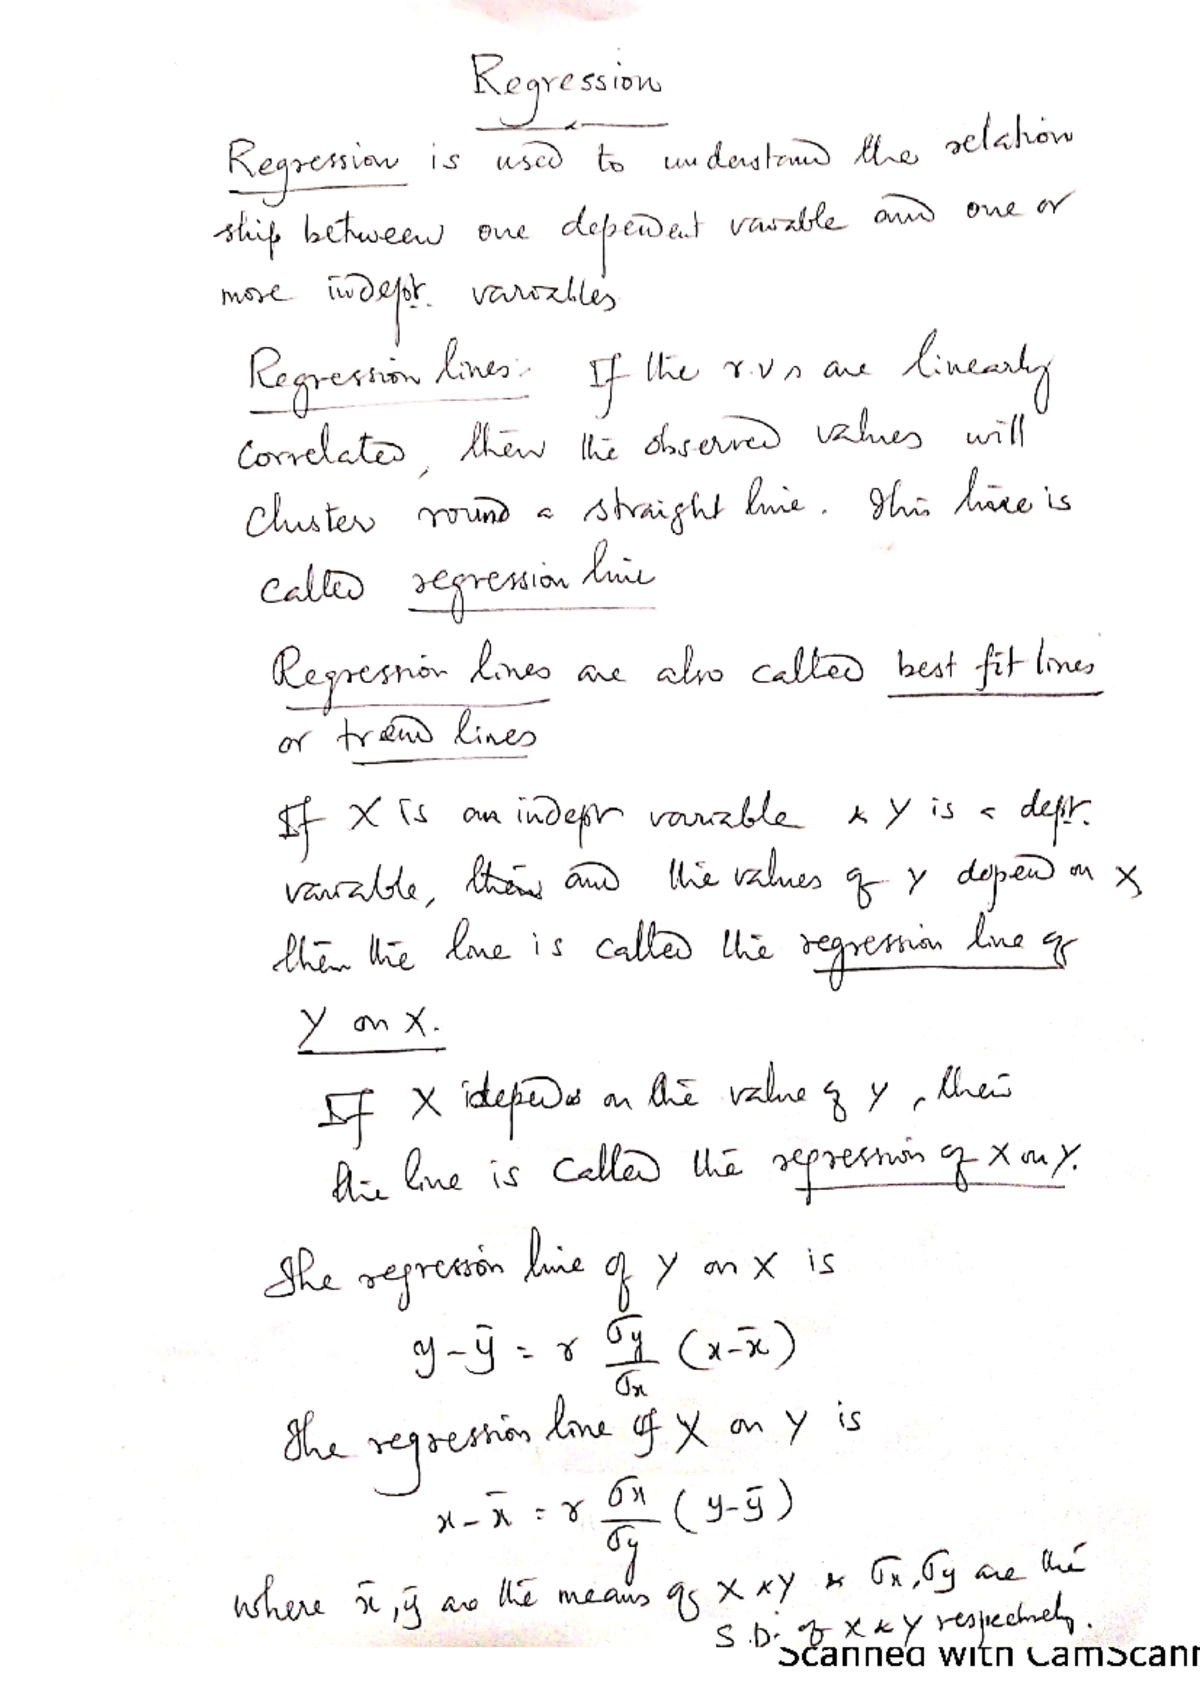 Regression
Regression is used to understand the relation
ship between one dependent variable and one or
more indept. variables
Regression lines: If the r.v s are linearly
correlated, then the observed values will
cluster round a straight line. This line is
called regression line
Regression lines are also called best fit lines
or trend lines
If X is an indept variable & Y is a dept.
variable, then and the values of Y depend on X,
then the line is called the regression line of
Y on X.
If X depends on the value of Y, then
the line is called the regression of X on Y.
The regression line of Y on X is
y - ȳ = r σy/σx (x - x̄)
The regression line of X on Y is
x - x̄ = r σx/σy (y - ȳ)
where x̄, ȳ are the means of X & Y & σx, σy are the
S.D. of X & Y respectively.
Scanned with CamScann